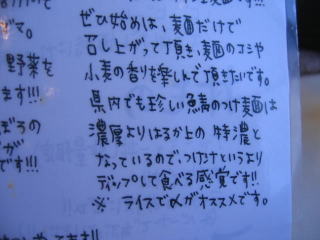 ぜひ始めは、麺だけで
召し上がって頂き、麺のコシや
小麦の香りを楽しんで頂きたいです。
県内でも珍しい鯖のつけ麺は
濃厚よりはるか上の 特濃と
なっているので、つけ汁というより
ディップして食べる感覚です!!
※ ライスで〆がオススメです。
マ。
野菜を
ます!!!
ぼろの
が
です!!!